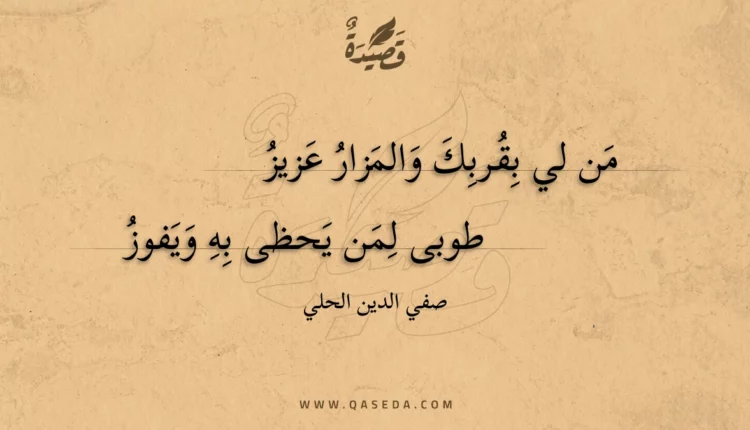 قَصِيدَةٌ
مَن لي بِقُربِكَ وَالمَزارُ عَزيزُ
طوبى لِمَن يَحظى بِهِ وَيَفوزُ
صفي الدين الحلي
WWW.QASEDA.COM